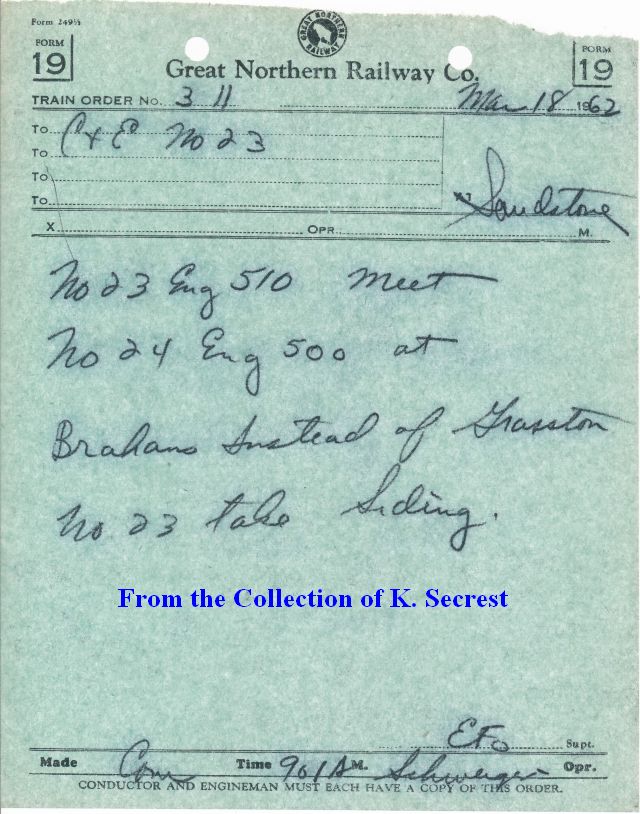 Form 249½
FORM
19
GREAT NORTHERN RAILWAY
FORM
19
Great Northern Railway Co.
TRAIN ORDER No. 311 Mar 18 1962
To C & E No 23
To
To
To
At Sandstone
X OPR. M.
No 23 Eng 510 Meet
No 24 Eng 500 at
Braham Instead of Grasston
No 23 take Siding.
From the Collection of K. Secrest
EFO Supt.
Made Com Time 901 A M. Schweiger Opr.
CONDUCTOR AND ENGINEMAN MUST EACH HAVE A COPY OF THIS ORDER.